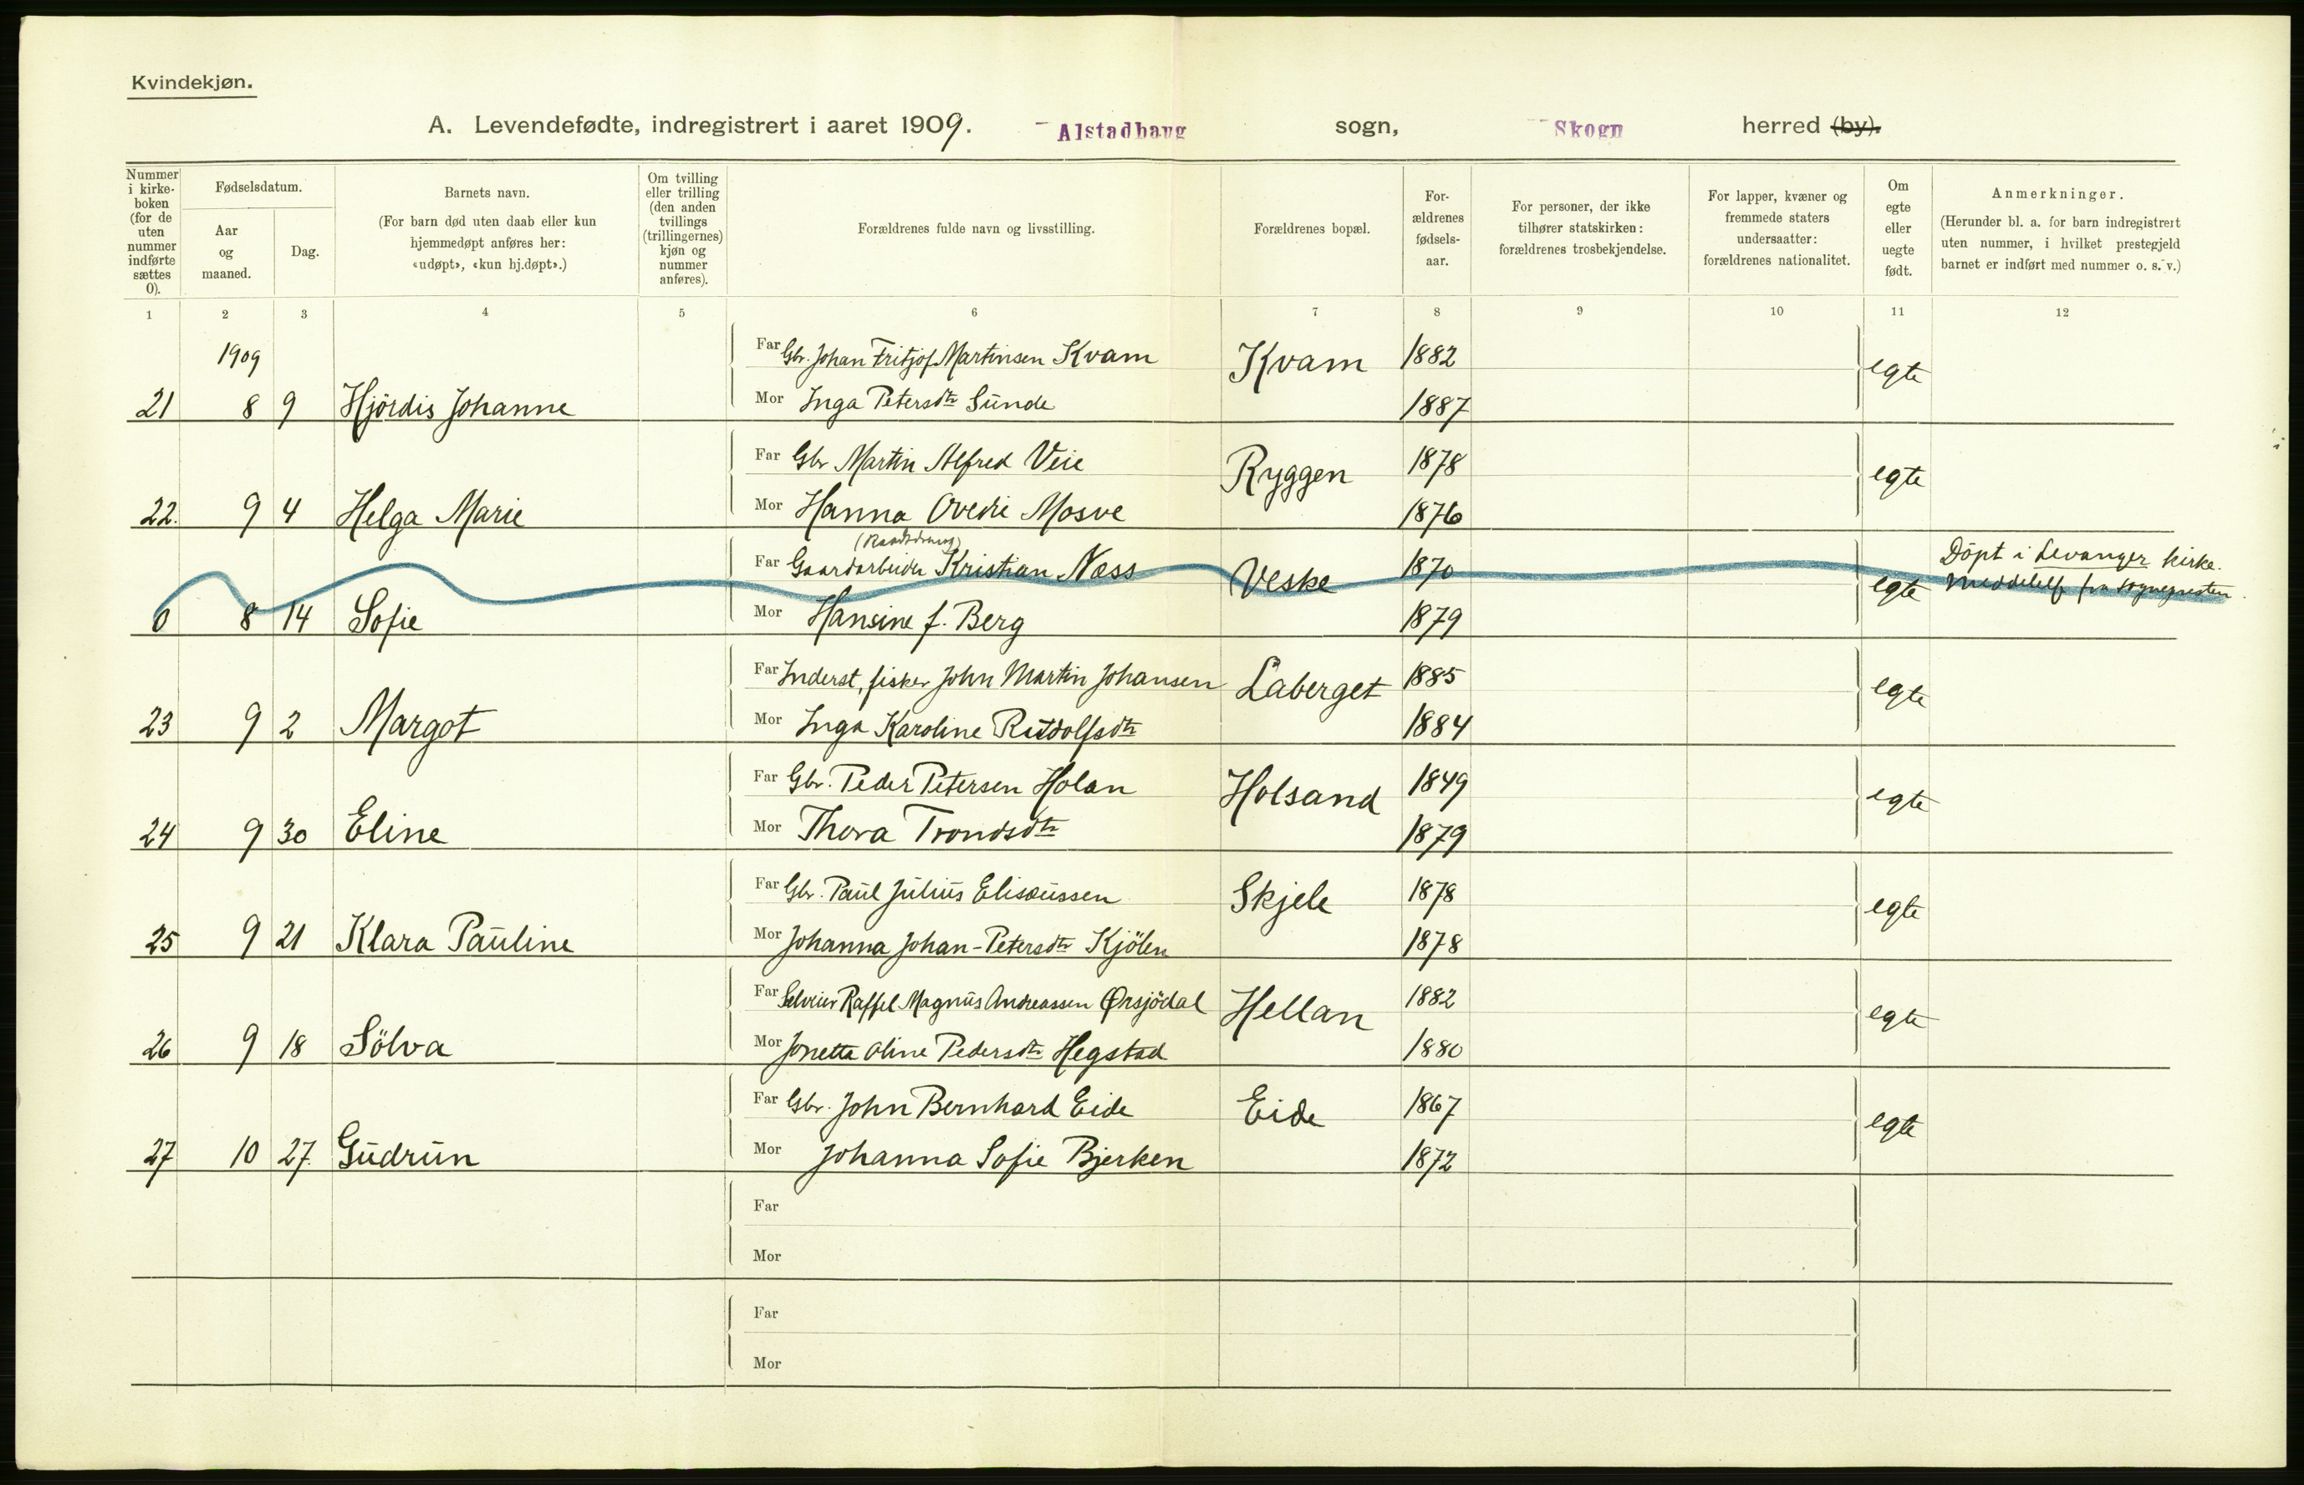 Kvindekjøn.
A. Levendefødte, indregistrert i aaret 1909. Alstadhaug sogn, Skogn herred (by).
Nummer i kirke-boken (for de uten nummer indførte sættes 0).
Fødselsdatum.
Aar og maaned.
Dag.
Barnets navn.
(For barn død uten daab eller kun hjemmedøpt anføres her: «udøpt», «kun hj.døpt».)
Om tvilling eller trilling (den anden tvillings (trillingernes) kjøn og nummer anføres).
Forældrenes fulde navn og livsstilling.
Forældrenes bopæl.
For-ældrenes fødsels-aar.
For personer, der ikke tilhører statskirken: forældrenes trosbekjendelse.
For lapper, kvæner og fremmede staters undersaatter: forældrenes nationalitet.
Om egte eller uegte født.
Anmerkninger.
(Herunder bl. a. for barn indregistrert uten nummer, i hvilket prestegjeld barnet er indført med nummer o. s. v.)
1 2 3 4 5 6 7 8 9 10 11 12
1909
Far Gbr. Johan Fritjof Martinsen Kvam Kvam 1882 egte
21 8 9 Hjördis Johanne Mor Inga Petersdtr Sunde 1887
Far Gbr Martin Alfred Veie Ryggen 1878 egte
22. 9 4 Helga Marie Mor Hanna Ovedie Mosve 1876
Far Gaardarbeider Kristian Næss Veske 1870 egte Döpt i Levanger kirke.
0 8 14 Sofie Mor Hansine f. Berg 1879
Far Inderst, fisker John Martin Johansen Laberget 1885 egte
23 9 2 Margot Mor Inga Karoline Rudolfsdtr 1884
Far Gbr. Peder Petersen Holan Holsand 1849 egte
24 9 30 Eline Mor Thora Trondsdtr 1879
Far Gbr. Paul Julius Elisæussen Skjele 1878 egte
25 9 21 Klara Pauline Mor Johanna Johan-Petersdtr Kjölen 1878
Far Selveier Raffel Magnus Andreassen Ørsjödal Hellan 1882 egte
26 9 18 Sölva Mor Jonetta Oline Pedersdtr Hegstad 1880
Far Gbr. John Bernhard Eide Eide 1867 egte
27 10 27. Gudrun Mor Johanna Sofie Bjerken 1872
Far
Mor
Far
Mor